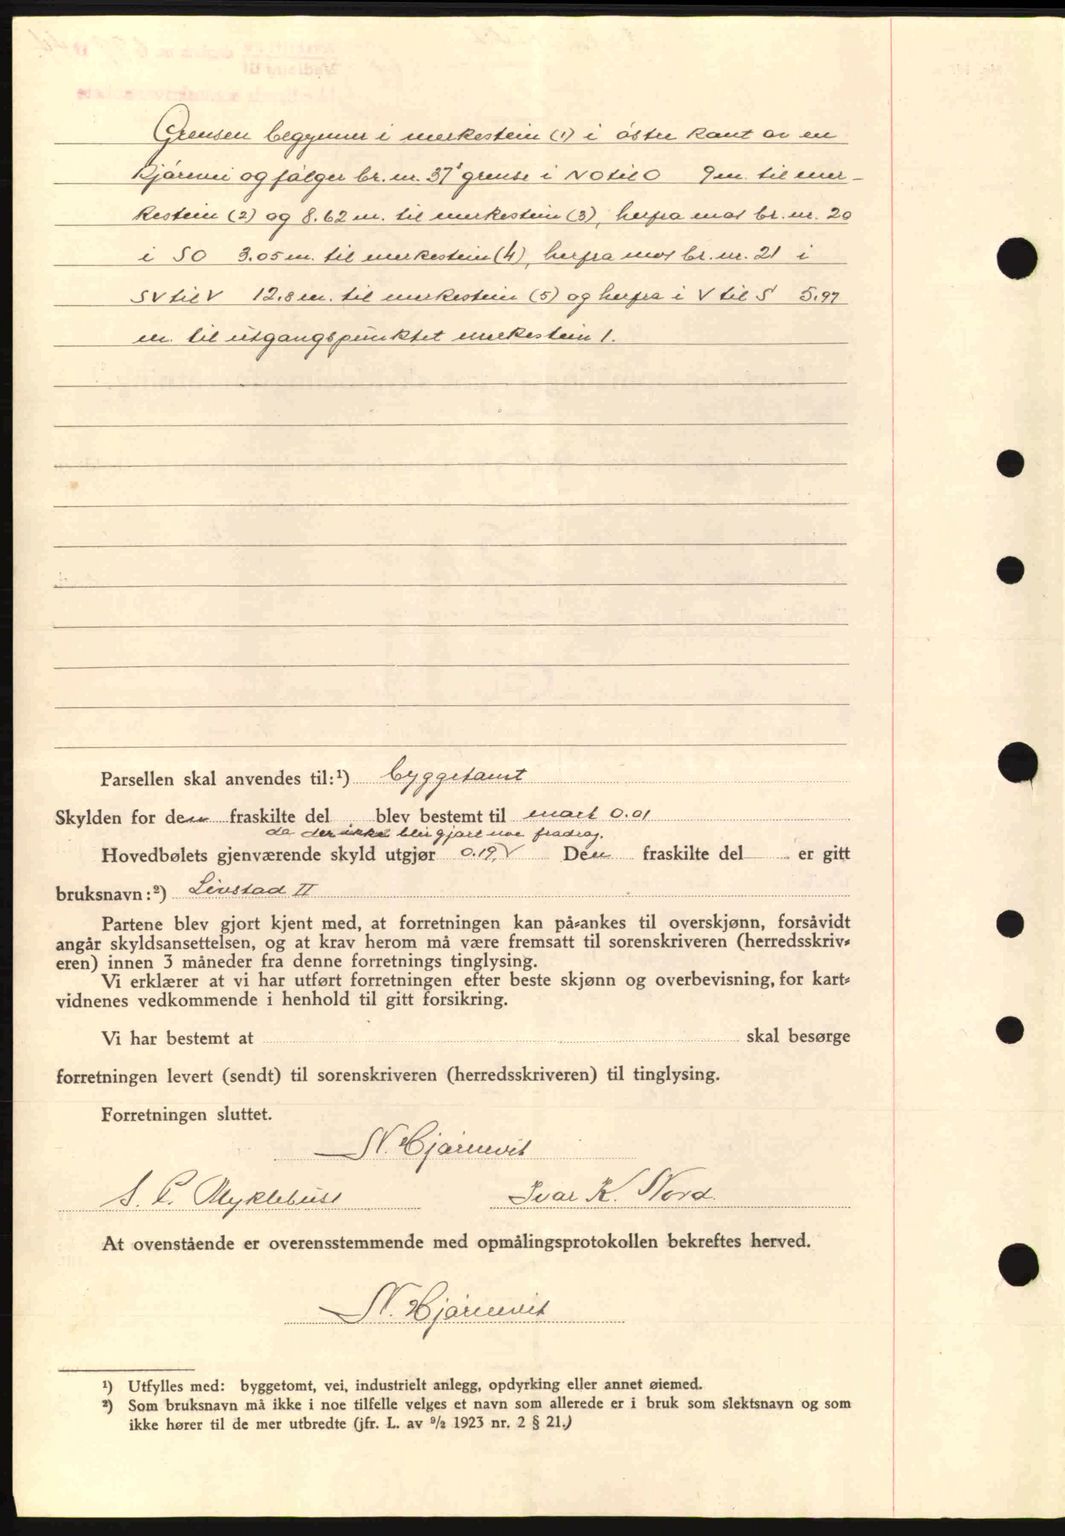 Grensen begynner i merkestein (1) i östre kant av en
og följer br. nr. 37's grense i NO til O 9 m. til mer-
kestein (2) og 8.62 m. til merkestein (3), herfra mot br. nr. 20
i SO 3.05 m. til merkestein (4), herfra mot br. nr. 21 i
SV til V 12.8 m. til merkestein (5) og herfra i V til S 5.97
m. til utgangspunktet merkestein 1.
Parsellen skal anvendes til:¹) byggetomt
Skylden for den fraskilte del blev bestemt til mark 0.01
da der ikke blir gjort noe fradrag.
Hovedbølets gjenværende skyld utgjør 0.19. Den fraskilte del er gitt
bruksnavn:²) Livstad II
Partene blev gjort kjent med, at forretningen kan på-ankes til overskjønn, forsåvidt
angår skyldsansettelsen, og at krav herom må være fremsatt til sorenskriveren (herredsskriv-
eren) innen 3 måneder fra denne forretnings tinglysing.
Vi erklærer at vi har utført forretningen efter beste skjønn og overbevisning, for kart-
vidnenes vedkommende i henhold til gitt forsikring.
Vi har bestemt at skal besørge
forretningen levert (sendt) til sorenskriveren (herredsskriveren) til tinglysing.
Forretningen sluttet.
N. Hjörnevit
S. P. Myklebust Ivar K. Nord.
At ovenstående er overensstemmende med opmålingsprotokollen bekreftes herved.
N. Hjörnevit
¹) Utfylles med: byggetomt, vei, industrielt anlegg, opdyrking eller annet øiemed.
²) Som bruksnavn må ikke i noe tilfelle velges et navn som allerede er i bruk som slektsnavn og som
ikke hører til de mer utbredte (jfr. L. av ⁹/₂ 1923 nr. 2 § 21.)